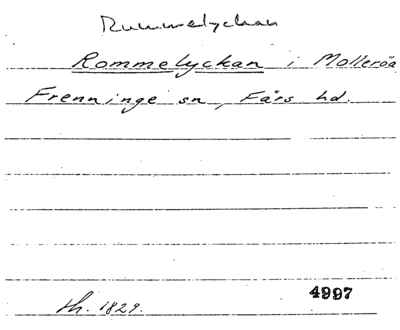 Rummelyckan
Rommelyckan i Molleröa
Frenninge sn, Färs hd.
th. 1829.
4997